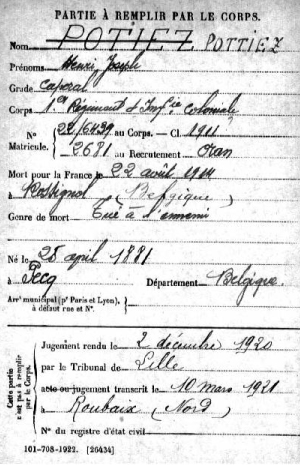 PARTIE À REMPLIR PAR LE CORPS.
Nom POTIEZ POTTIEZ
Prénoms Henri Joseph
Grade Caporal
Corps 1er Régiment d'Infie coloniale
N° 22/6439 au Corps. — Cl. 1911
Matricule. 2681 au Recrutement Oran
Mort pour la France le 22 août 1914
à Rossignol (Belgique)
Genre de mort Tué à l'ennemi
Né le 25 april 1881
à Pecq Département Belgique
Arrt municipal (pr Paris et Lyon),
à défaut rue et N°.
Cette partie n'est pas à remplir par le Corps.
Jugement rendu le 2 décembre 1920
par le Tribunal de Lille
acte ou jugement transcrit le 10 mars 1921
à Roubaix (Nord)
N° du registre d'état civil
101-708-1922. [26434]